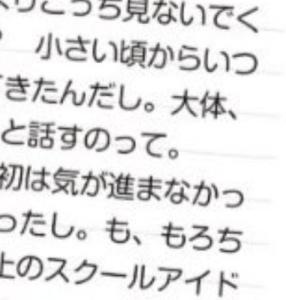 こっち見ないでく
小さい頃からいつ
きたんだし。大体、
と話すのって。
初は気が進まなかっ
ったし。も、もろち
上のスクールアイド